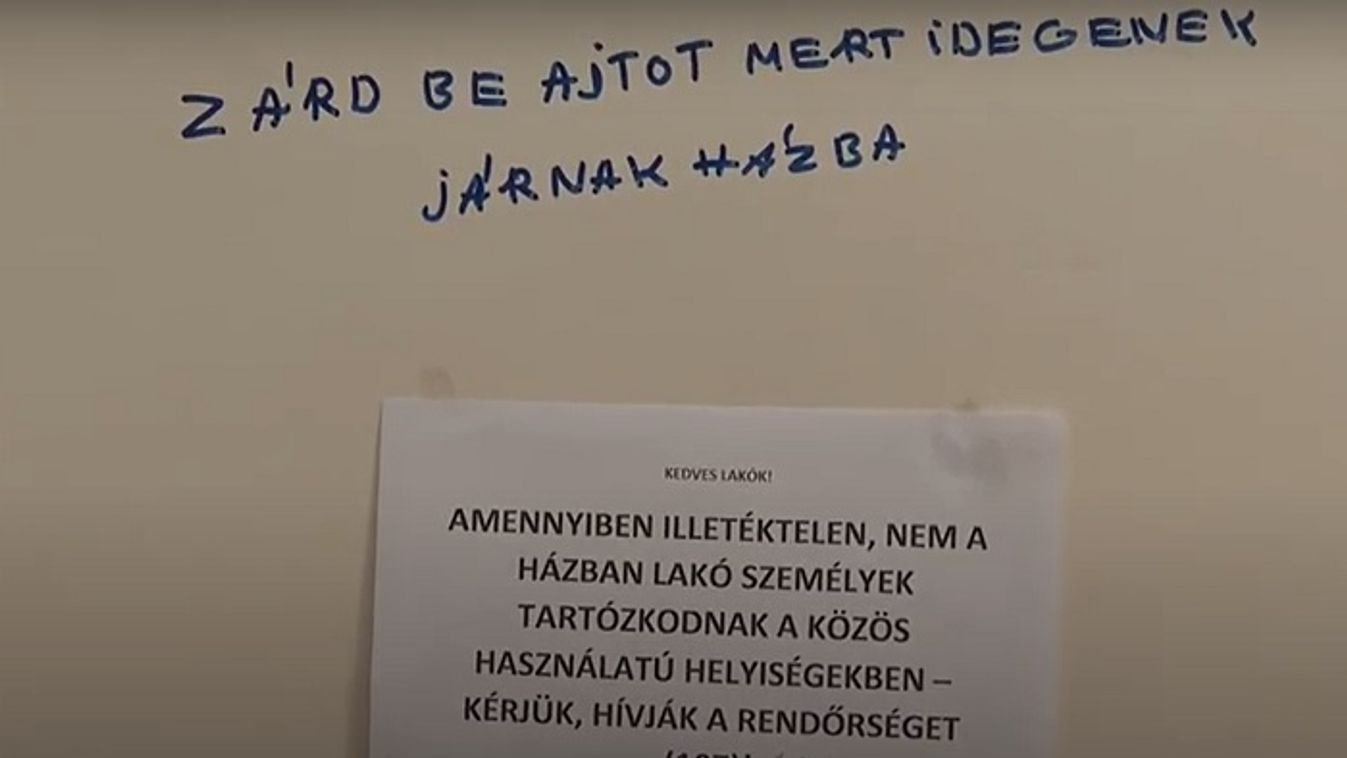 ZÁRD BE AJTOT MERT IDEGENEK
JÁRNAK HÁZBA
KEDVES LAKÓK!
AMENNYIBEN ILLETÉKTELEN, NEM A
HÁZBAN LAKÓ SZEMÉLYEK
TARTÓZKODNAK A KÖZÖS
HASZNÁLATÚ HELYISÉGEKBEN –
KÉRJÜK, HÍVJÁK A RENDŐRSÉGET